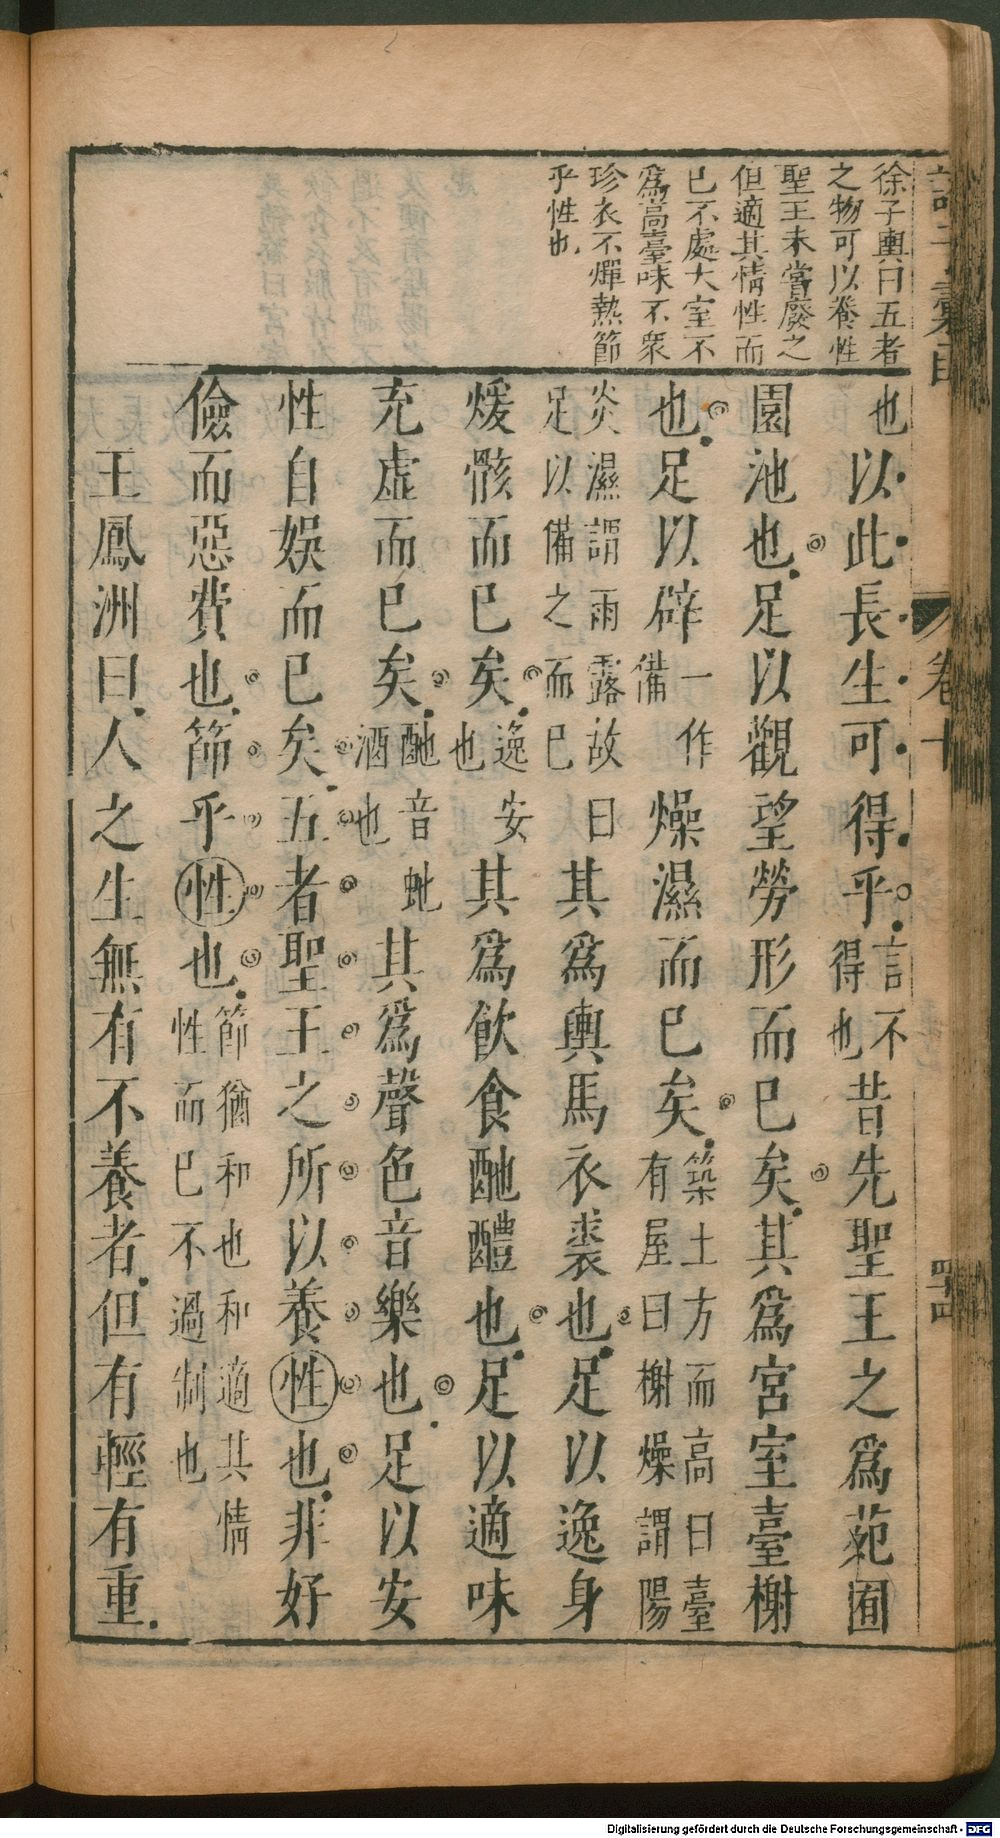 徐子輿曰五者
之物可以養性
聖王未嘗廢之
但適其情性而
已不處大室不
爲高臺味不衆
珍衣不燀熱節
乎性也
也以此長生可得乎言不
得也昔先聖王之爲苑囿
園池也足以觀望勞形而已矣其爲宮室臺榭
也足以辟一作
備燥濕而已矣築土方而高曰臺
有屋曰榭燥謂陽
炎濕謂雨露故曰
足以備之而已其爲輿馬衣裘也足以逸身
煖骸而已矣逸安
也其爲飲食酏醴也足以適味
充虛而已矣酏音虵
酒也其爲聲色音樂也足以安
性自娛而已矣五者聖王之所以養性也非好
儉而惡費也節乎性也節猶和也和適其情
性而已不過制也
王鳳洲曰人之生無有不養者但有輕有重
卷十
四十四
Digitalisierung gefördert durch die Deutsche Forschungsgemeinschaft - DFG